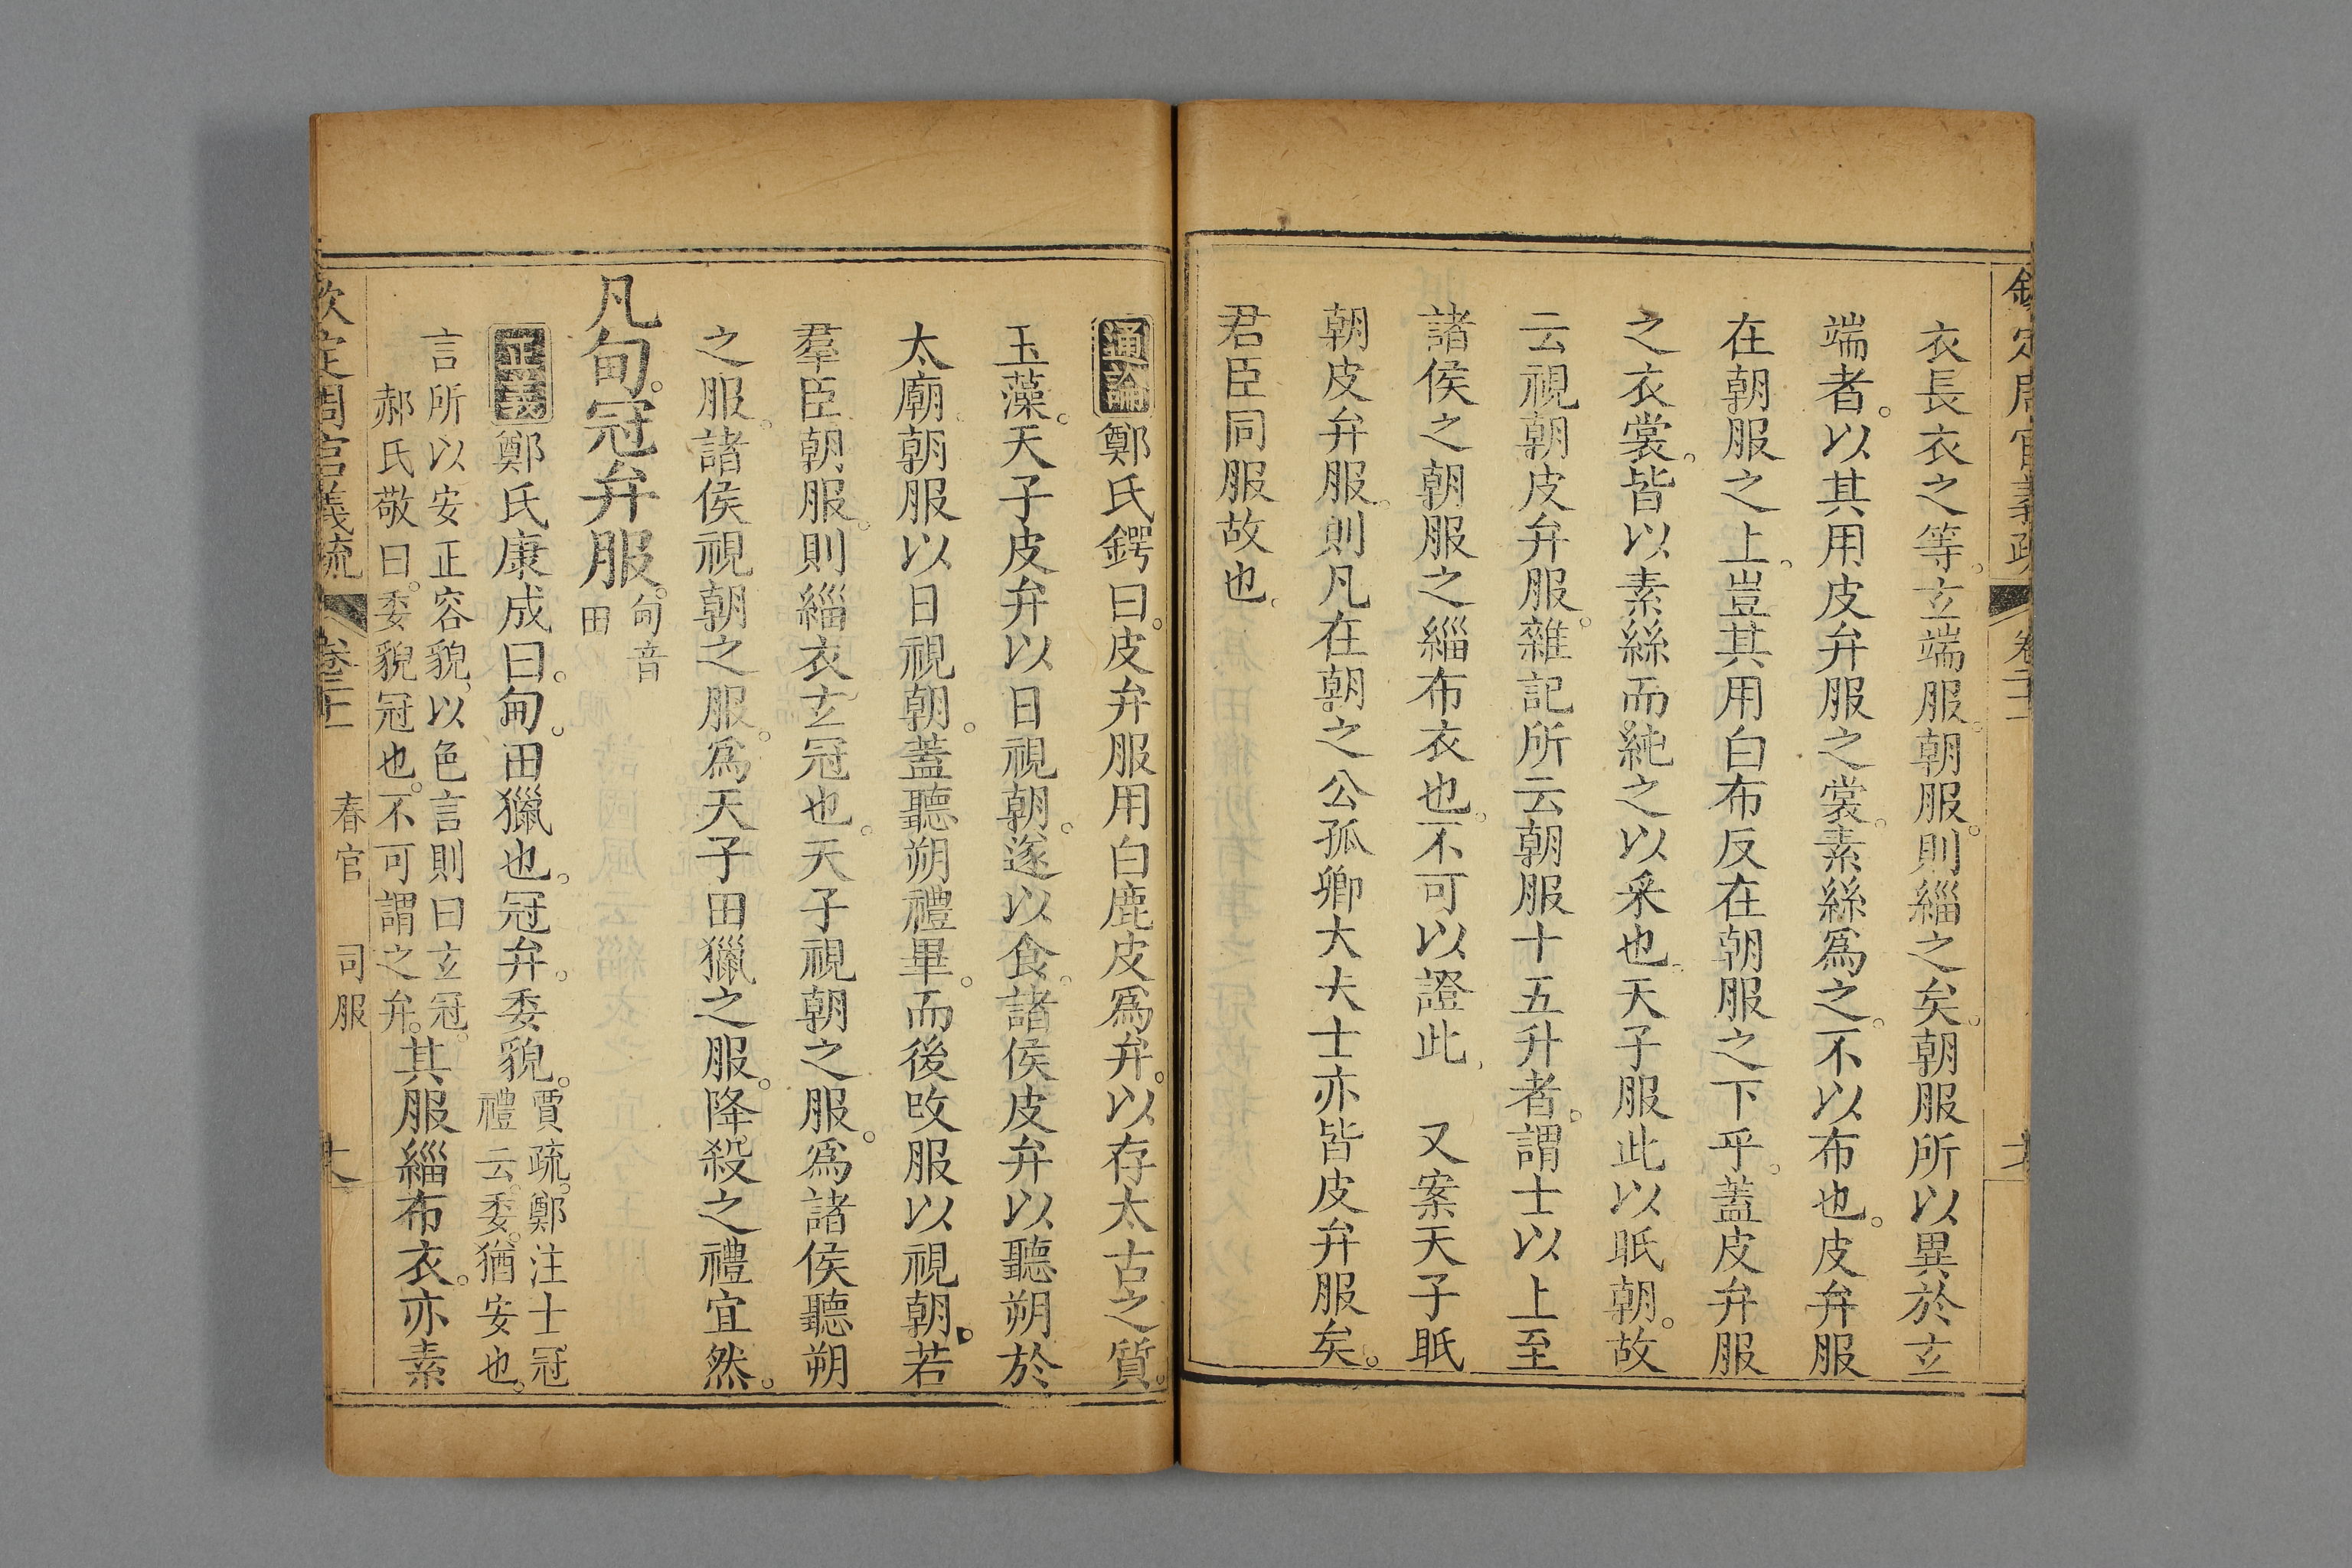 欽定周官義疏 卷二十一
衣長衣之等。玄端服。朝服。則緇之矣。朝服所以異於玄
端者。以其用皮弁服之裳。素絲爲之。不以布也。皮弁服
在朝服之上。豈其用白布反在朝服之下乎。蓋皮弁服
之衣裳。皆以素絲而純之以采也。天子服此以眂朝。故
云視朝皮弁服。雜記所云朝服十五升者。謂士以上至
諸侯之朝服之緇布衣也。不可以證此、 又案天子眂
朝皮弁服。則凡在朝之公孤卿大夫士亦皆皮弁服矣。
君臣同服故也、
通論鄭氏鍔曰。皮弁服用白鹿皮爲弁。以存太古之質。
玉藻。天子皮弁以日視朝。遂以食。諸侯皮弁以聽朔於
太廟。朝服以日視朝。蓋聽朔禮畢。而後改服以視朝。若
羣臣朝服。則緇衣玄冠也。天子視朝之服。爲諸侯聽朔
之服。諸侯視朝之服。爲天子田獵之服。降殺之禮宜然。
凡甸。冠弁服。甸音
田
正義鄭氏康成曰。甸。田獵也。冠弁。委貌。賈疏。鄭注士冠
禮云。委。猶安也。
言所以安正容貌、以色言則曰玄冠。
郝氏敬曰。委貌冠也。不可謂之弁。其服緇布衣。亦素
欽定周官義疏 卷二十一 春官 司服